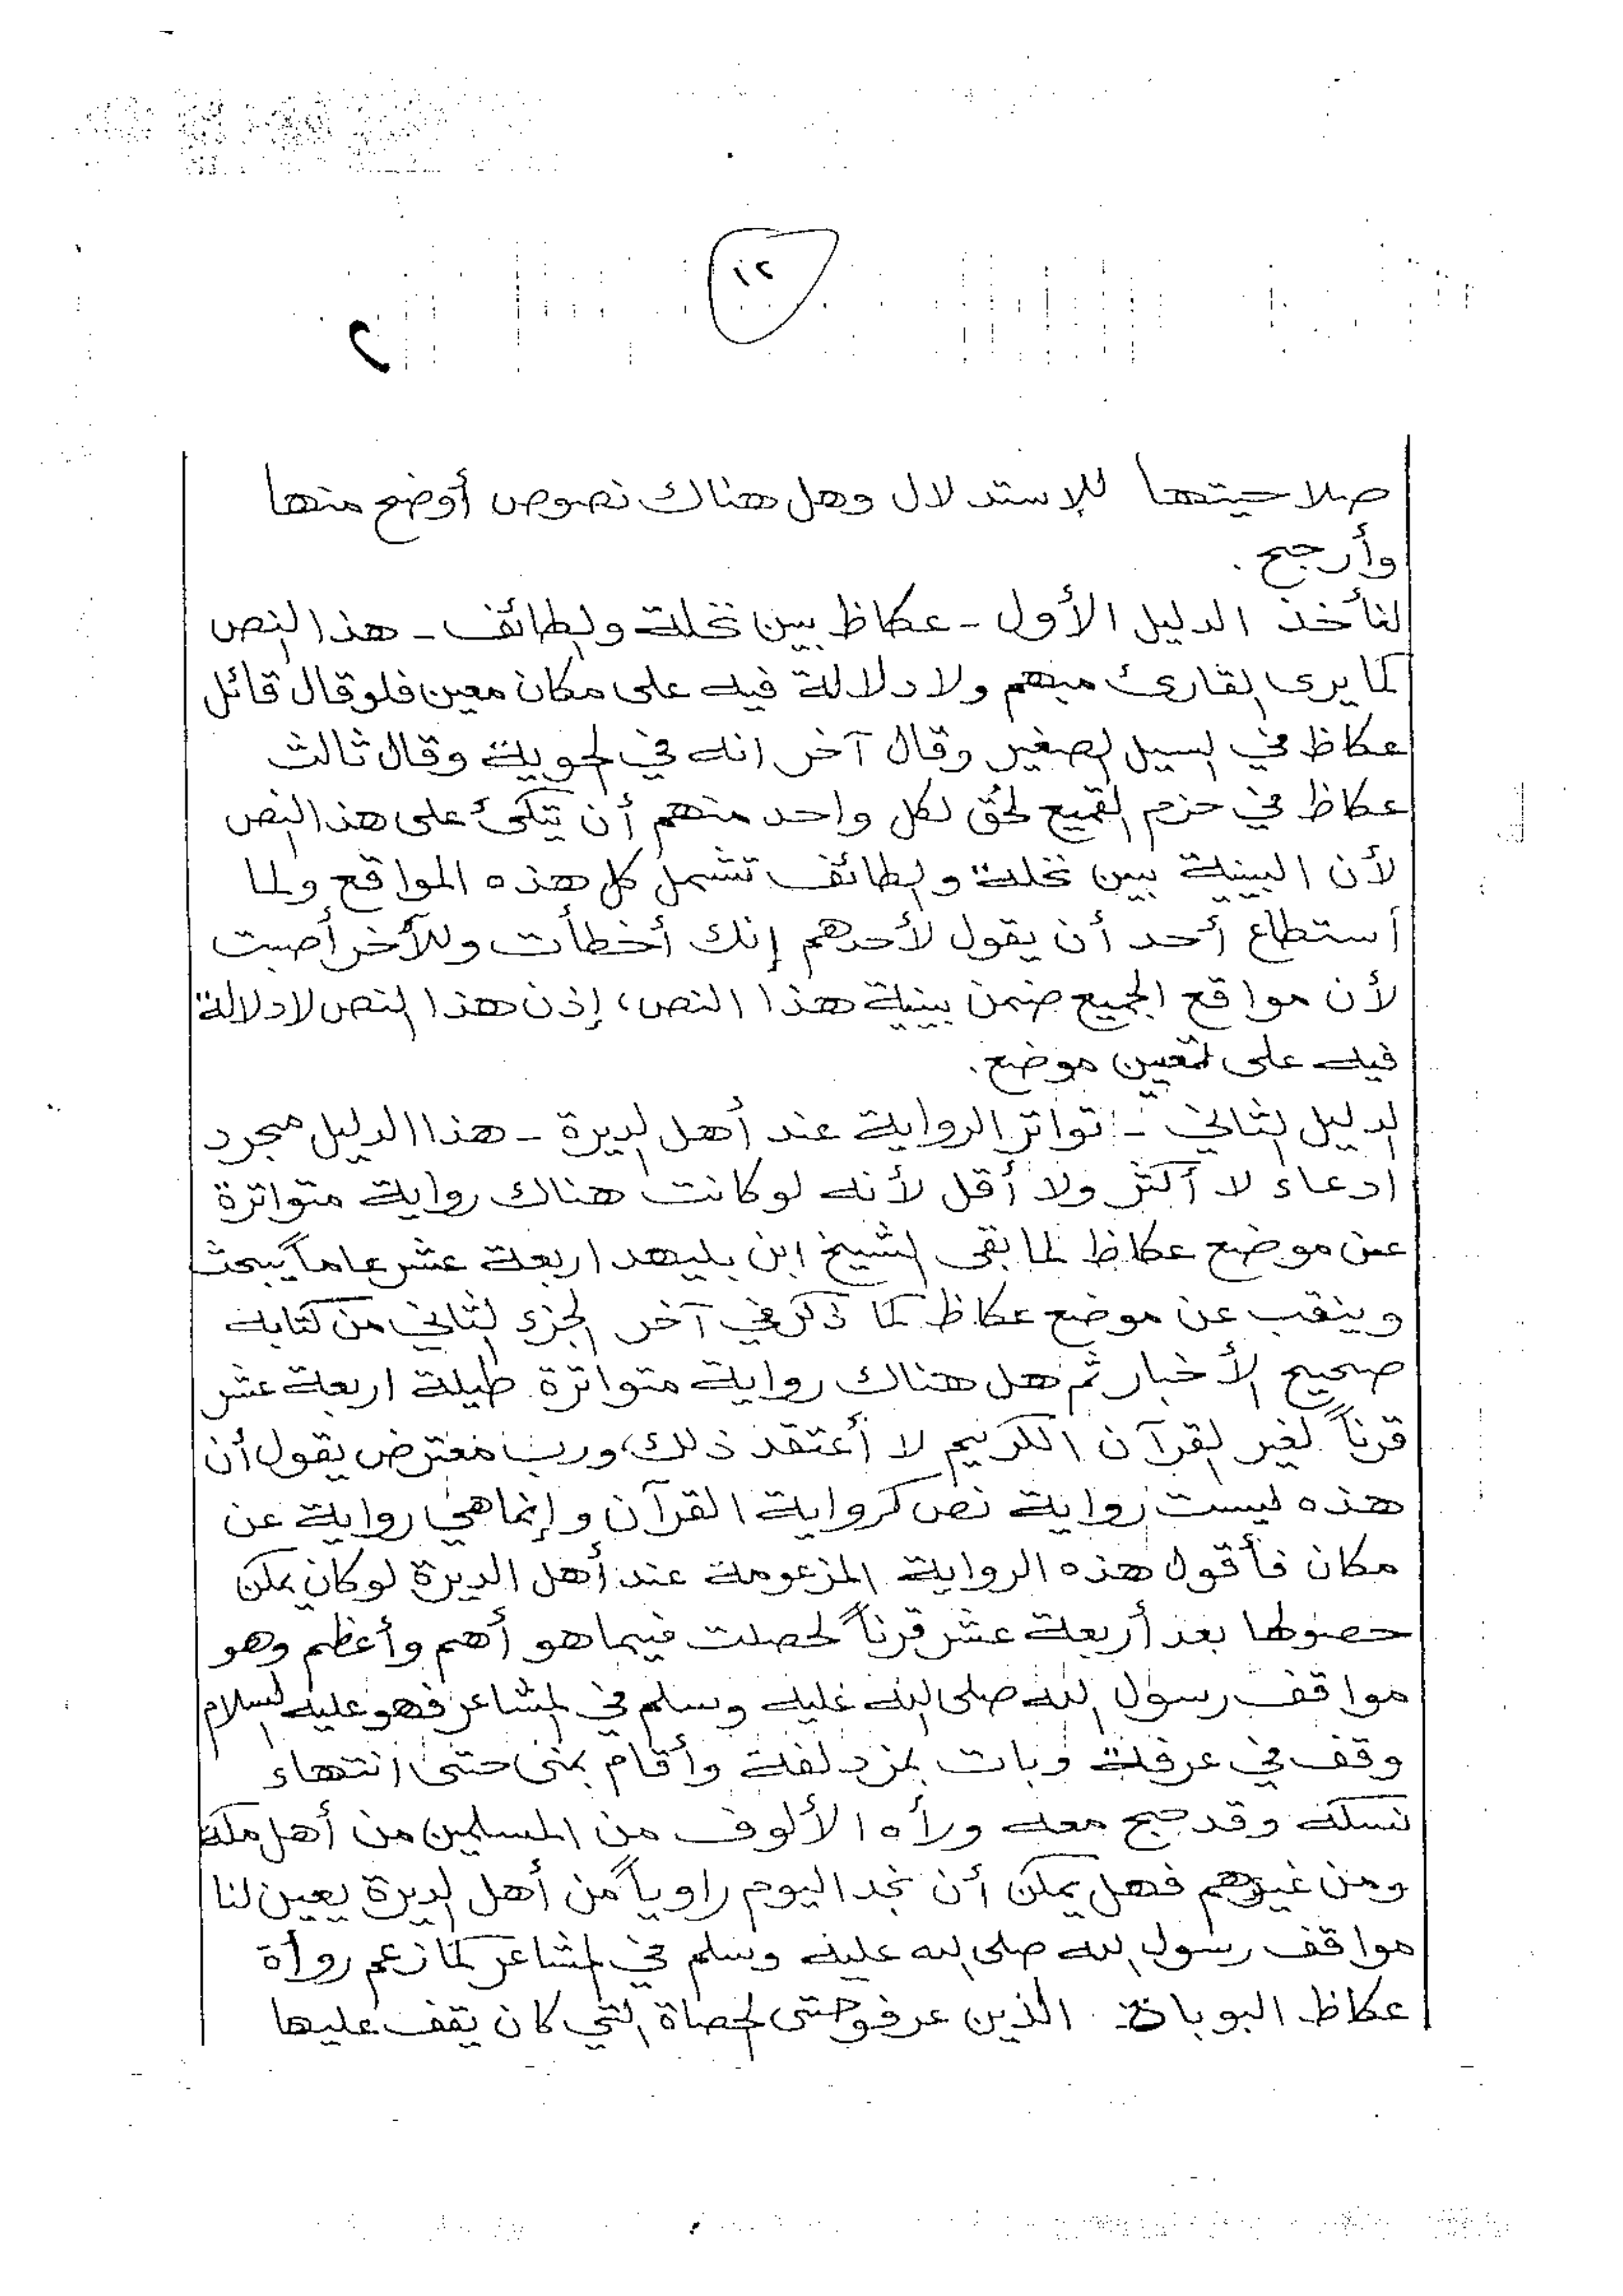 ١٢
صلاحيتها للإستدلال وهل هناك نصوص أوضح منها
وأرجح .
لنأخذ الدليل الأول - عكاظ بين نخلة والطائف - هذا النص
كما يرى القارئ مبهم ولا دلالة فيه على مكان معين فلو قال قائل
عكاظ في السيل الصغير وقال آخر انه في الحوية وقال ثالث
عكاظ في حزم القميع لحُق لكل واحد منهم أن يتكئ على هذا النص
لأن البينية بين نخلة والطائف تشمل كل هذه المواقع ولما
أستطاع أحد أن يقول لأحدهم إنك أخطأت وللآخر أصبت
لأن مواقع الجميع ضمن بينية هذا النص، إذن هذا النص لا دلالة
فيه على تعيين موضع .
الدليل الثاني - تواتر الرواية عند أهل الديرة - هذا الدليل مجرد
ادعاء لا أكثر ولا أقل لأنه لو كانت هناك رواية متواترة
عن موضع عكاظ لما بقى الشيخ ابن بليهد اربعة عشر عاماً يبحث
وينقب عن موضع عكاظ كما ذكر في آخر الجزء الثاني من كتابه
صحيح الأخبار ثم هل هناك رواية متواترة طيلة اربعة عشر
قرناً لغير القرآن الكريم لا أعتقد ذلك، ورب معترض يقول أن
هذه ليست رواية نص كرواية القرآن وإنما هي رواية عن
مكان فأقول هذه الرواية المزعومة عند أهل الديرة لو كان يمكن
حصولها بعد أربعة عشر قرناً لحصلت فيما هو أهم وأعظم وهو
مواقف رسول الله صلى الله عليه وسلم في المشاعر فهو عليه السلام
وقف في عرفة وبات بمزدلفة وأقام بمنى حتى انتهاء
نسكه وقد حج معه ورأه الألوف من المسلمين من أهل مكة
ومن غيرهم فهل يمكن أن نجد اليوم راوياً من أهل الديرة يعين لنا
مواقف رسول الله صلى الله عليه وسلم في المشاعر كما زعم رواة
عكاظ البوباة الذين عرفو حتى الحصاة التي كان يقف عليها